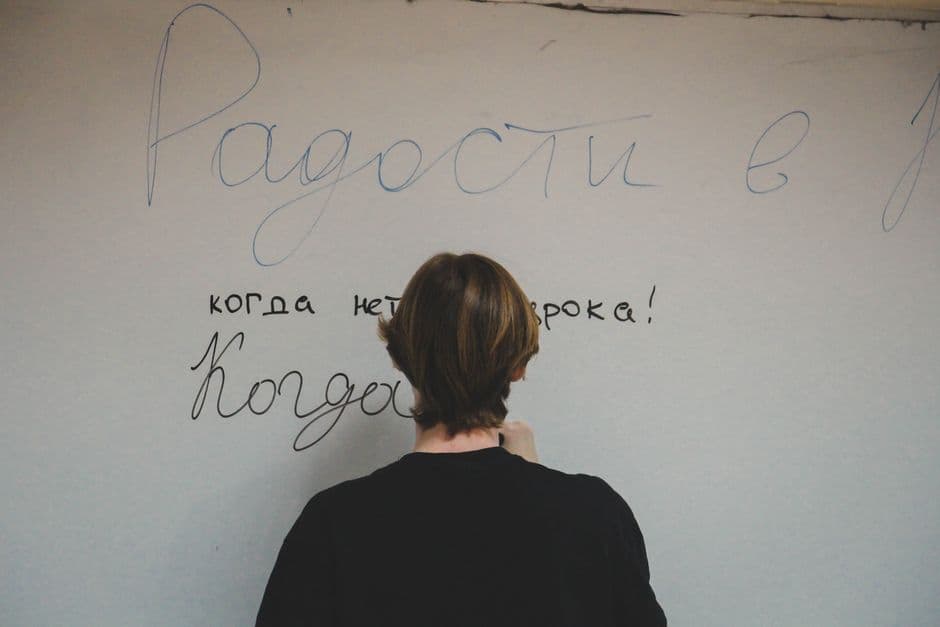 Радости в
когда нет урока!
Когда